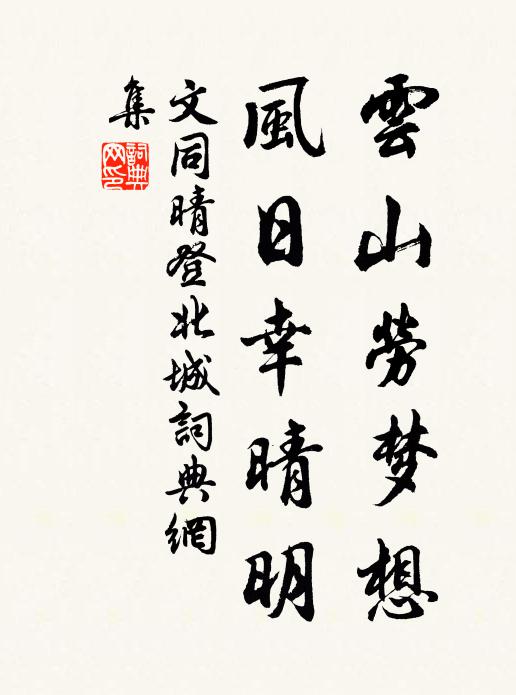 雲山勞梦想
風日幸晴明
文同晴登北城詞典網
集
詞典
网印